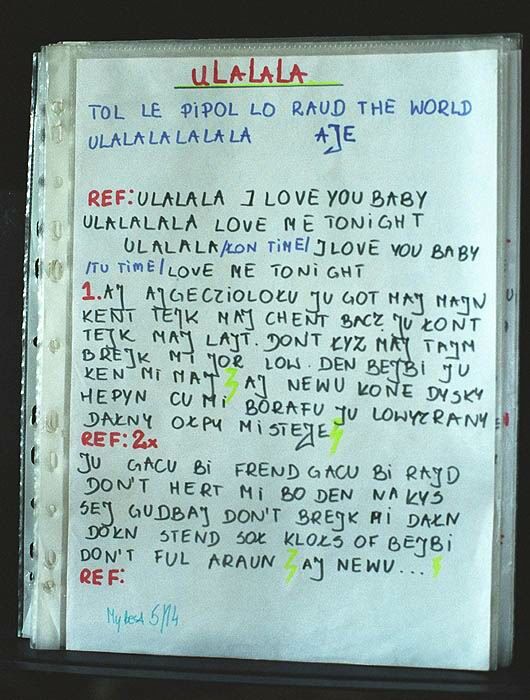 ULALALA
TOL LE PIPOL LO RAUD THE WORLD
ULALALALALALA AJE
REF: ULALALA I LOVE YOU BABY
ULALALALA LOVE ME TONIGHT
ULALALA /ŁON TIME/ I LOVE YOU BABY
/TU TIME/ LOVE ME TONIGHT
1. AJ AJGECZIOLOKU JU GOT MAJ MAJN
KENT TEJK MAJ CHENT BACZ JU ŁONT
TEJK MAJ LAJT. DONT ŁYZ MAJ TAJM
BREJK MI JOR LOW. DEN BEJBI JU
KEN MI MAJ AJ NEWU KONE DYSKY
HEPYN CU MI BORAFU JU LOWYZRANY
DAŁNY OŁPU MISTEJE
REF: 2x
JU GACU BI FREND GACU BI RAJD
DON'T HERT MI BO DEN NA KYS
SEJ GUDBAJ DON'T BREJK MI DAŁN
DOŁN STEND SOŁ KLOŁS OF BEJBI
DON'T FUL ARAUN AJ NEWU...
REF:
My best 5/14